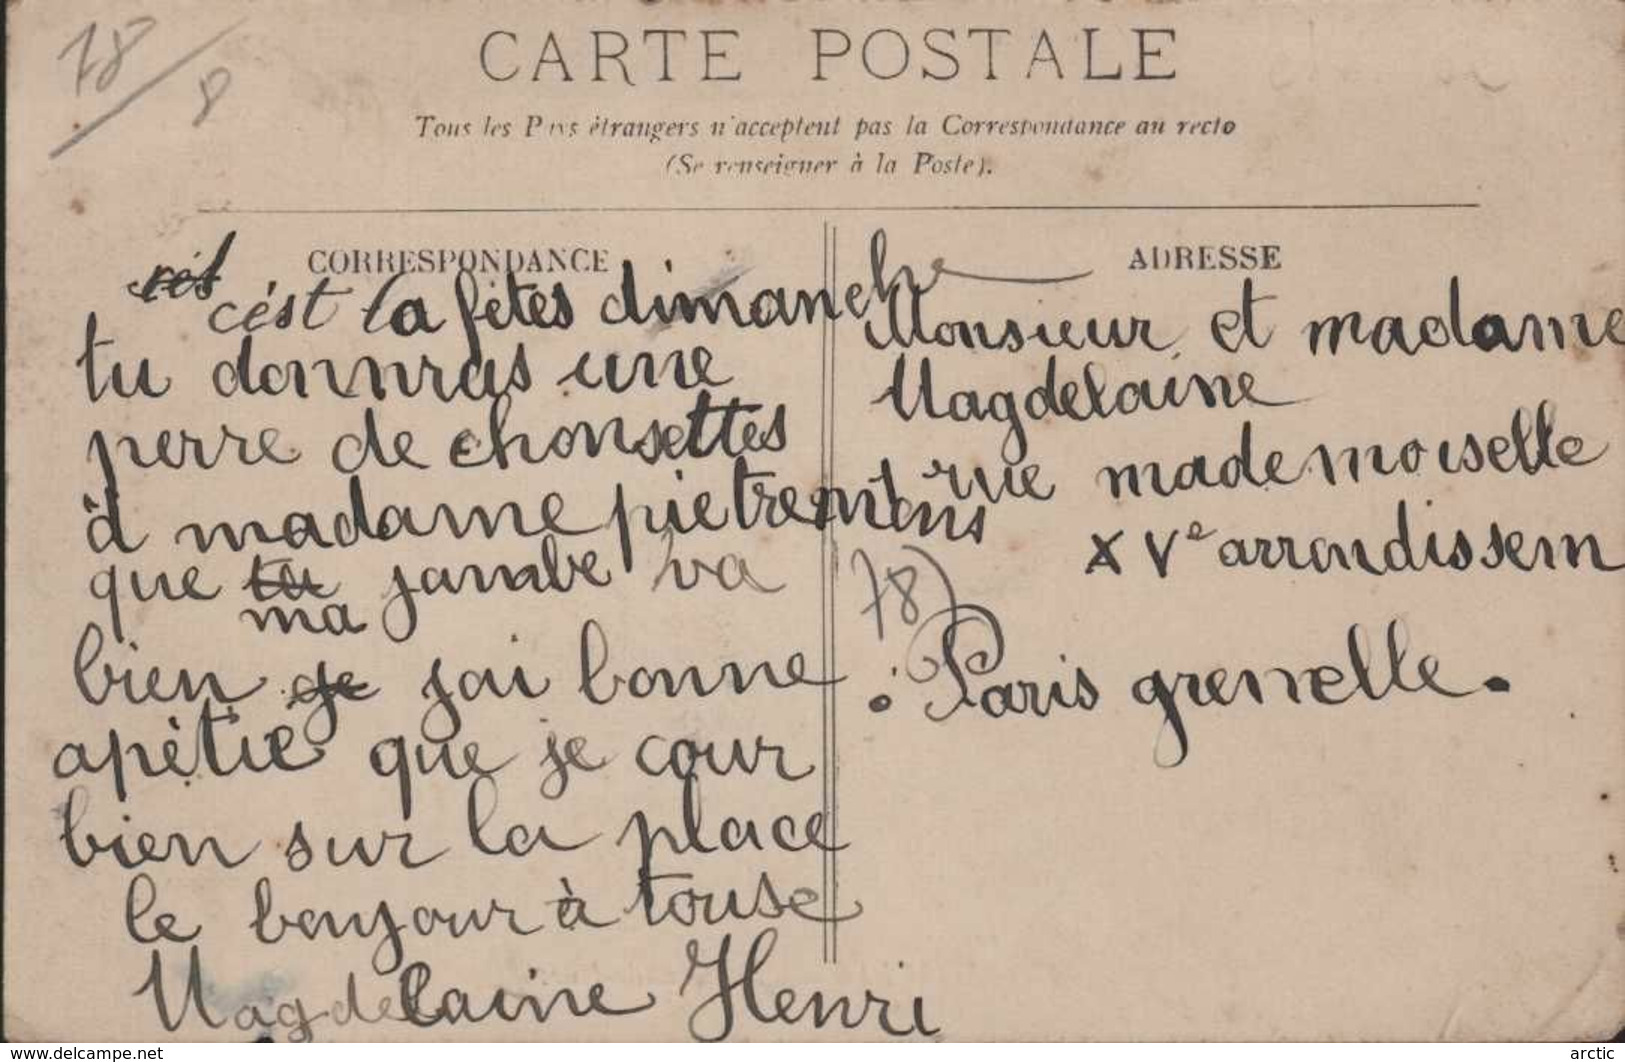 18/8
CARTE POSTALE
Tous les Pays étrangers n'acceptent pas la Correspondance au recto
(Se renseigner à la Poste).
CORRESPONDANCE
c'ést la fêtes dimanche
tu donnras une
perre de chonsettes
à madame pietremens
que tu jambe va
ma
bien je jai bonne
apétie que je cour
bien sur la place
le bonjour à touse
Magdelaine Henri
ADRESSE
Monsieur et madame
Magdelaine
1 rue mademoiselle
XVe arrondissem
78)
Paris grenelle.
www.delcampe.net
arctic